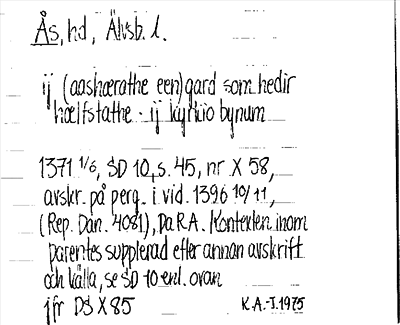 Ås, hd, Älvsb. l.
ij (aashærathe een) gard som hedir
hælfstathe · ij kyrkio bynum
1371 1/6, SD 10, s. 45, nr X 58,
avskr. på perg. i vid. 1396 10/11,
(Rep. Dan. 4081), Da.R.A. Kontexten inom
parentes supplerad efter annan avskrift
och källa, se SD 10 enl. ovan
jfr DS X 85
K.A.-I. 1975